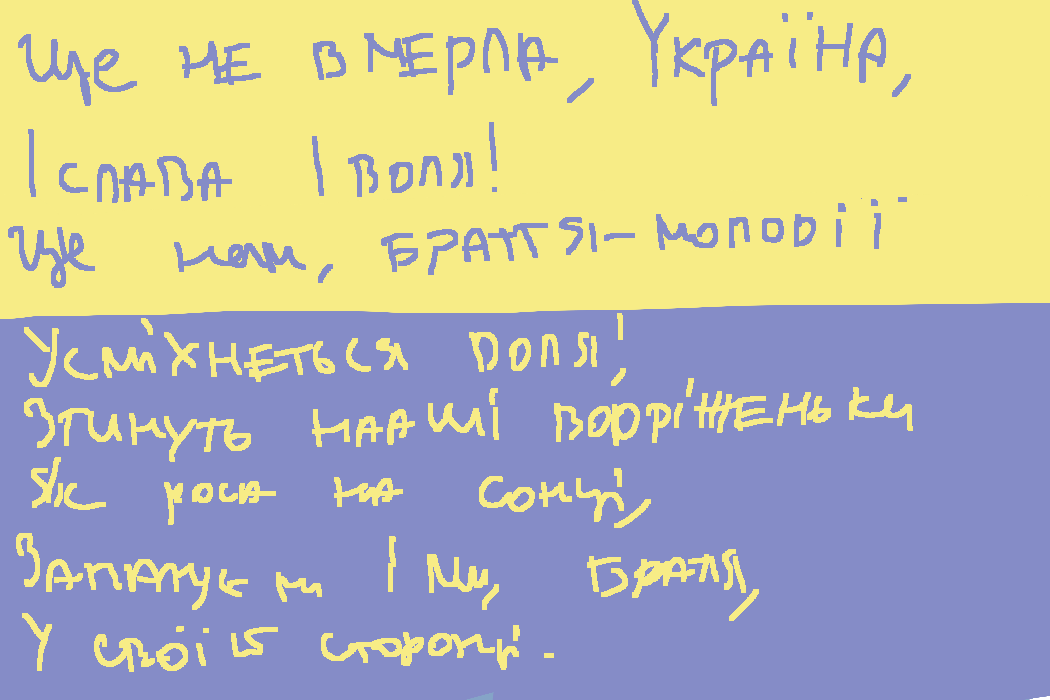 Ще не вмерла, Україна,
І слава І воля!
Ще нам, браття-молодії
Усміхнеться доля!
Згинуть нааші воррі'женьки
Як роса на сонці,
Запануєм І ми, братя,
У своїй стороні.